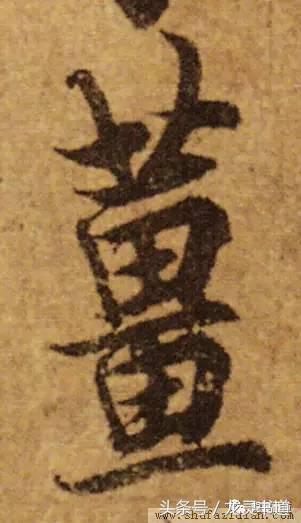 薑
头条号／龙灵书道
www.shufazidian.com